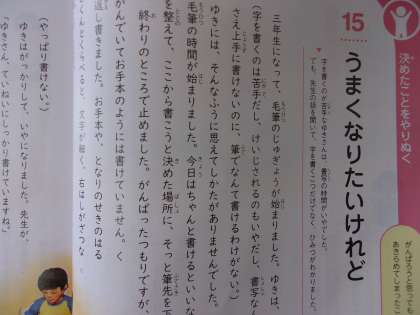 決めたことをやりぬく
がんばろうと思っても
あきらめてしまったこ
15
うまくなりたいけれど
字を書くのが苦手なゆきさんは、書写の時間がいやでした。
でも、先生の話を聞いて、字を書くこつだけでなく、ひみつがわかりました。
三年生になって、毛筆のじゅぎょうが始まりました。ゆきは、
(字を書くのは苦手だし、けいじされるのもいやだし、書写な
さえ上手に書けないのに、筆でなんて書けるわけがない。)
ゆきは、そんなふうに思えてしかたがありませんでした。
毛筆の時間が始まりました。今日はちゃんと書けるといいな
を整えて、ここから書こうと決めた場所に、そっと筆先を下
終わりのところで止めました。がんばったつもりですが、
がんでいてお手本のようには書けていません。く
返し書きました。お手本や、となりのせきのはる
(やっぱり書けない。)
ゆきはがっかりして、いやになりました。先生が、
「ゆきさん、ていねいにしっかり書けていますね。